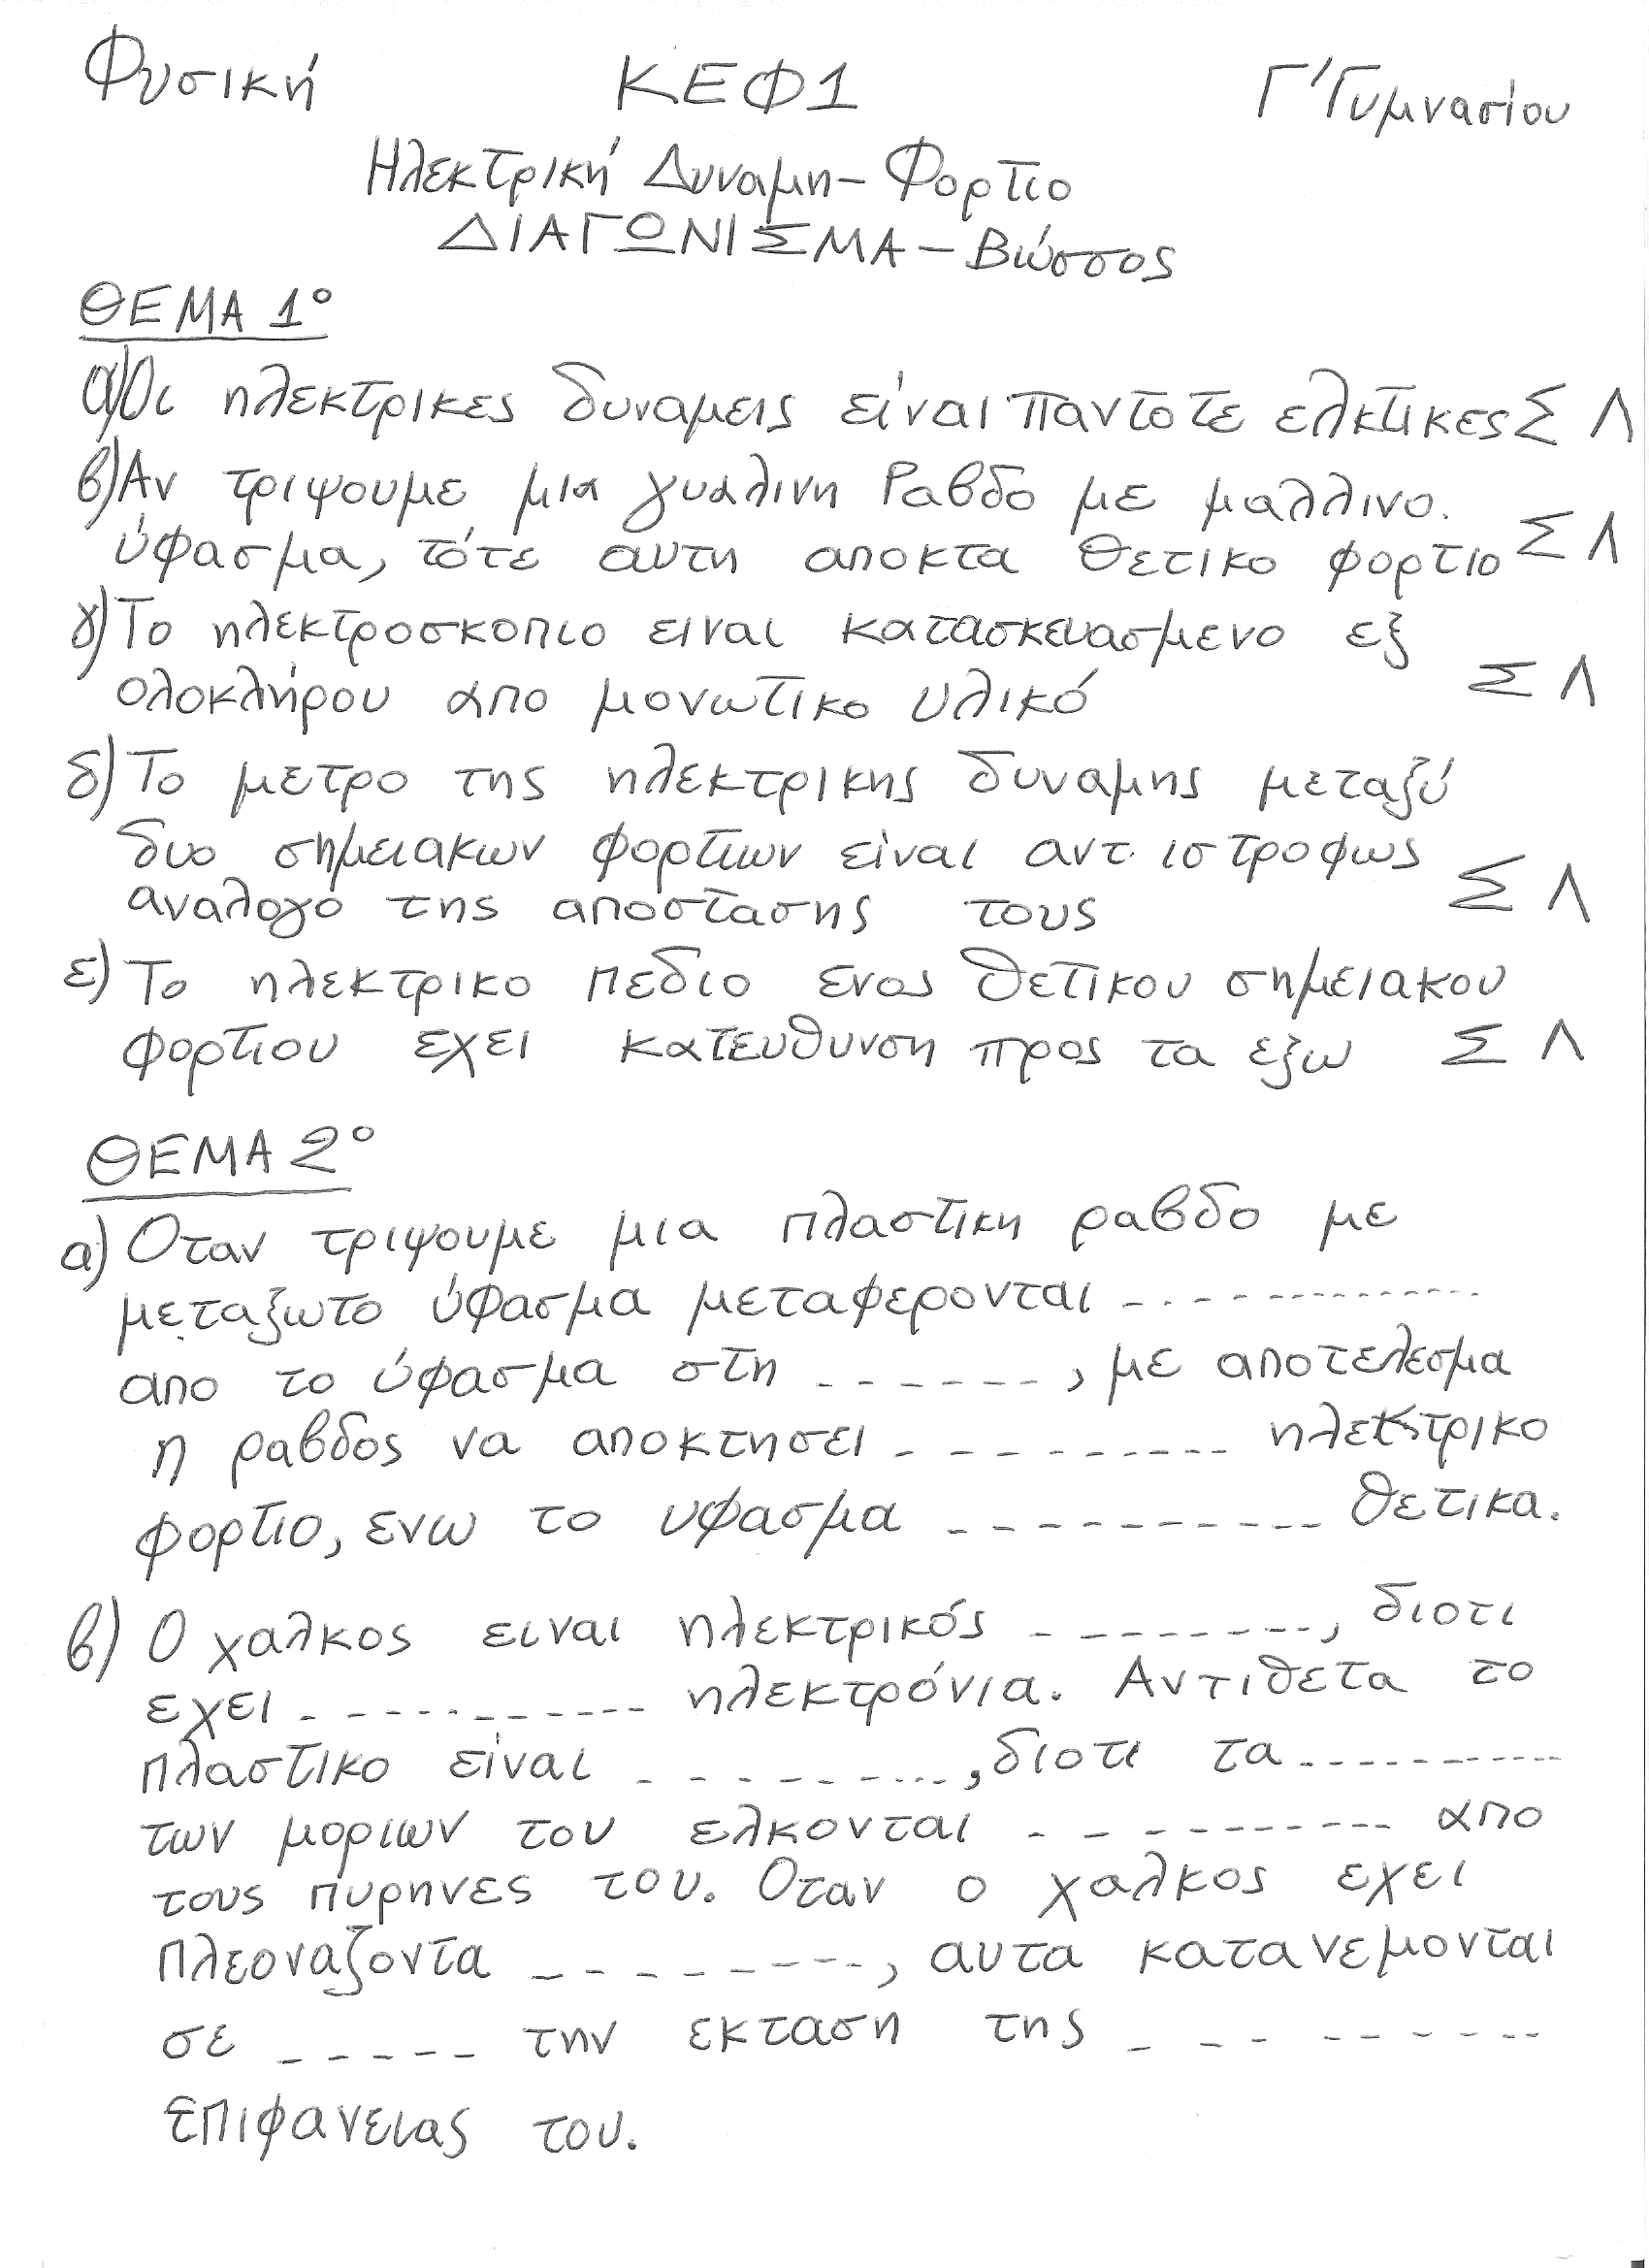 Φυσική ΚΕΦ1 Γ'Γυμνασίου
Ηλεκτρική Δυναμη - Φορτιο
ΔΙΑΓΩΝΙΣΜΑ - Βιώσσος
ΘΕΜΑ 1°
α)Οι ηλεκτρικες δυναμεις είναι παντοτε ελκτικες Σ Λ
β)Αν τριψουμε μια γυαλινη Ραβδο με μαλλινο.
ύφασμα, τότε αυτη αποκτα θετικο φορτιο Σ Λ
γ)Το ηλεκτροσκοπιο ειναι κατασκευασμενο εξ
ολοκλήρου απο μονωτικο υλικό Σ Λ
δ)Το μετρο της ηλεκτρικης δυναμης μεταξύ
δυο σημειακων φορτιων είναι αντιστροφως
αναλογο της αποστασης τους Σ Λ
ε) Το ηλεκτρικο πεδιο ενος θετικου σημειακου
φορτιου εχει κατευθυνση προς τα εξω Σ Λ
ΘΕΜΑ 2°
α) Οταν τριψουμε μια πλαστικη ραβδο με
μεταξωτο ύφασμα μεταφερονται - - - - - - - - - -
απο το ύφασμα στη - - - - - - , με αποτελεσμα
η ραβδος να αποκτησει - - - - - - - - - ηλεκτρικο
φορτιο, ενω το υφασμα - - - - - - - - - - θετικα.
β) Ο χαλκος ειναι ηλεκτρικός - - - - - - - - , διοτι
εχει - - - - - - - - - - ηλεκτρόνια. Αντιθετα το
πλαστικο είναι - - - - - - - - , διοτι τα - - - - - - - - - -
των μοριων του ελκονται - - - - - - - - - - απο
τους πυρηνες του. Οταν ο χαλκος εχει
πλεοναζοντα - - - - - - - - , αυτα κατανεμονται
σε - - - - - την εκταση της - - - - - - - -
επιφανειας του.